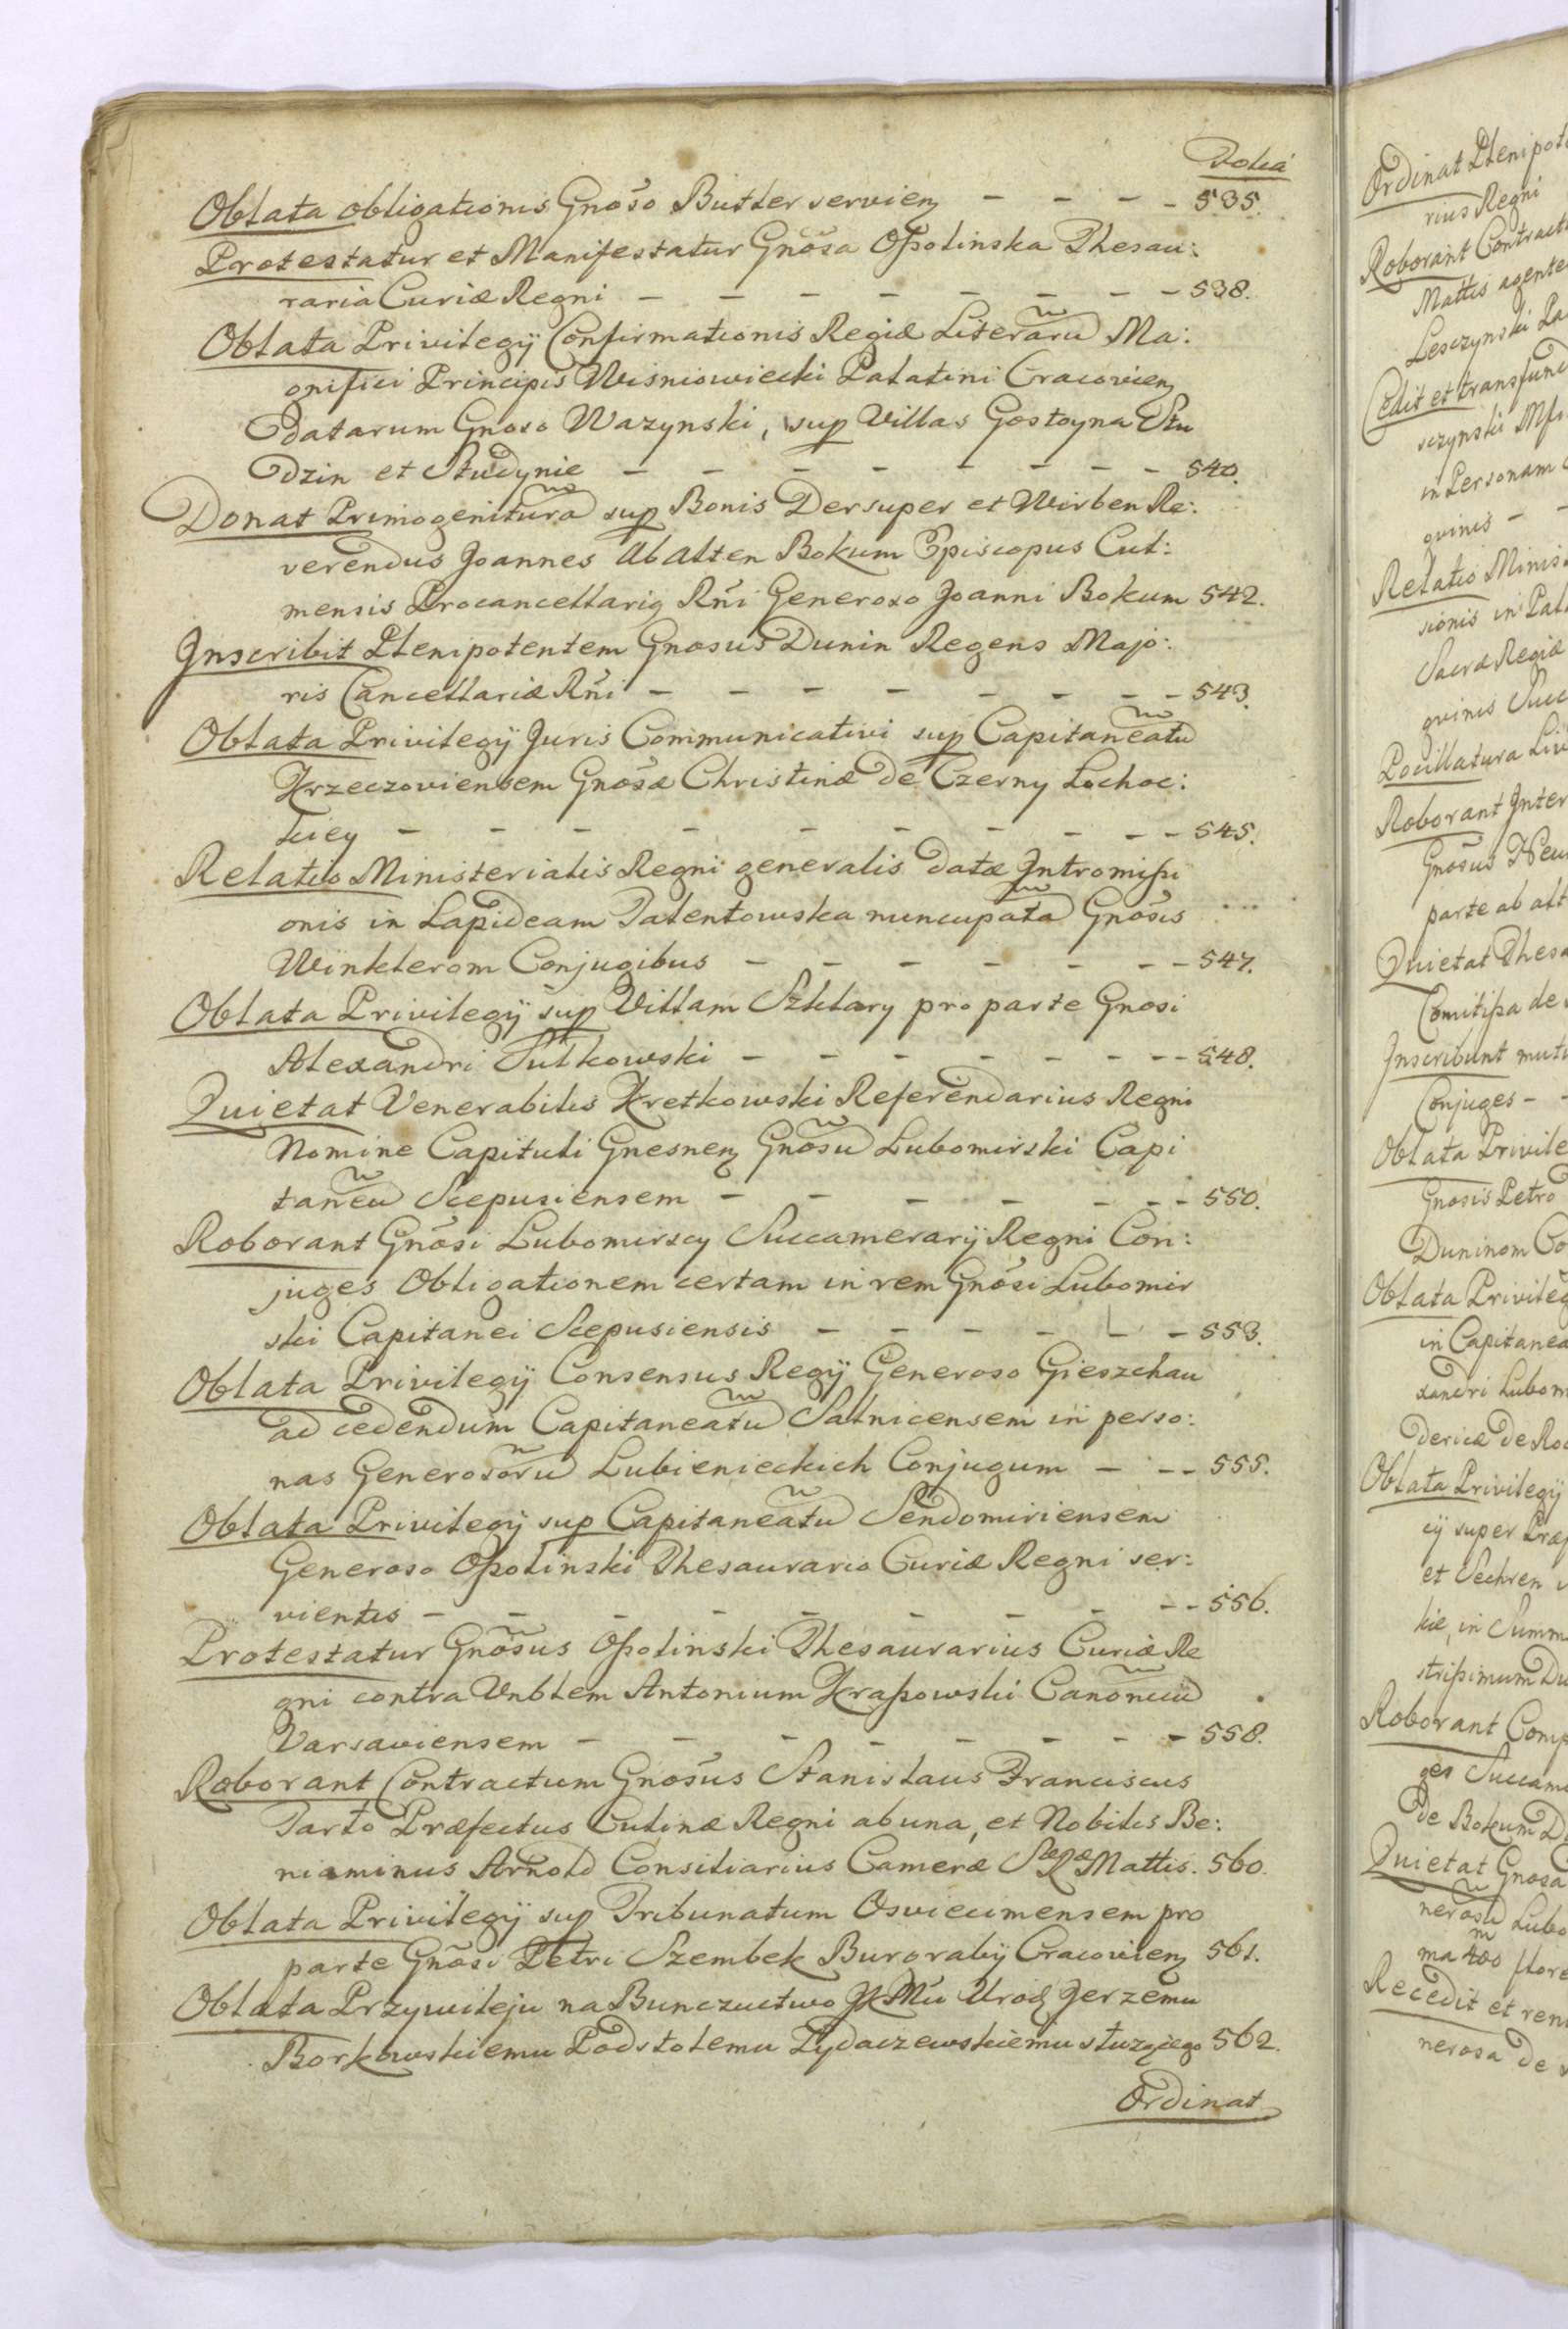 Folia
Oblata obligationis Gnõso Butler servien̄ - - - - 535.
Protestatur et Manifestatur Gnõsa Opolinska Thesau:
raria Curiæ Regni - - - - - - - - 538.
Oblata Privilegÿ Confirmationis Regiæ Literarũ Ma:
gnifici Principis Wisniowiecki Palatini Cracovien̄
datarum Gnoso Wazynski, sup Villas Gostoyna Stu
dzin et Studynie - - - - - - - - 540.
Donat Primogenitura sup Bonis Dersuper et Wirben Re:
verendus Joannes ab alten Bokum Episcopus Cul:
mensis Procancellarig Rñi Generoso Joanni Bokum 542.
Inscribit Plenipotentem Gnosus Dunin Regens Majo:
ris Cancellariæ Rñi - - - - - - - - 543.
Oblata Privilegÿ Juris Communicativi sup Capitaneatũ
Krzeczoviensem Gnõsæ Christinæ de Czerny Lochoc:
kiey - - - - - - - - - 545.
Relatio Ministerialis Regni generalis datæ Intromissi
onis in Lapideam Talentowska nuncupatã Gnõsis
Winklerom Conjugibus - - - - - - - 547.
Oblata Privilegÿ sup Villam Szklary pro parte Gnosi
Alexandri Sulkowski - - - - - - - - 548.
Quietat Venerabilis Kretkowski Referendarius Regni
Nomine Capituli Gnesnen̄ Gnõsũ Lubomirski Capi
taneũ Scepusiensem - - - - - - - 550.
Roborant Gnõsi Lubomirscy Succamerarÿ Regni Con:
juges Obligationem certam in rem Gnõsi Lubomir
ski Capitanei Scepusiensis - - - - - - 553.
Oblata Privilegÿ Consensus Regÿ Generoso Gieszchau
ad cedendum Capitaneatũ Salnicensem in perso:
nas Generosorũ Lubienieckich Conjugum - - - 555.
Oblata Privilegÿ sup Capitaneatũ Sendomiriensem
Generoso Opolinski Thesaurario Curiæ Regni ser:
vientis - - - - - - - - - - 556.
Protestatur Gnõsus Opolinski Thesaurarius Curiæ Re
gni contra Vnblem Antonium Krassowski Canonicũ
Varsaviensem - - - - - - - - 558.
Roborant Contractum Gnõsus Stanislaus Franciscus
Tarło Præfectus Culinæ Regni ab una, et Nobilis Be:
niaminus Arnold Consiliarius Cameræ Sæ Ræ Mattis. 560.
Oblata Privilegÿ sup Tribunatum Osviecimensem pro
parte Gnõsi Petri Szembek Burgrabÿ Cracovien̄ 561.
Oblata Przywileju na Bunczuctwo JKMci Urodz Jerzemu
Borkowskiemu Podstolemu Zydaczewskiemu słuzącego 562.
Ordinat
Ordinat Plenipot
rius Regni
Roborant Contract
Mattis agente
Lesczynski Pa
Cedit et transfund
sczynski
in Personam
gvinis - -
Relatio Minis
sionis in Pal
Sacræ Regiæ
gvinis Succ
Pocillatura Liv
Roborant Inter
Gnõsus
parte ab alt
Quietat Thesa
Comitissa de
Inscribunt mutu
Conjuges - -
Oblata Privile
Gnosis Petro
Duninom Co
Oblata Privileg
in Capitanea
xandri Lubom
dericæ de Ro
Oblata Privilegÿ
cÿ super Præf
et Sechren
kie, in Summ
strissimum Du
Roborant Comp
ges Succam
de Bokum D
Quietat Gnosa
nerosũ Lubo
ma flore
Recedit et ren
nerosa de